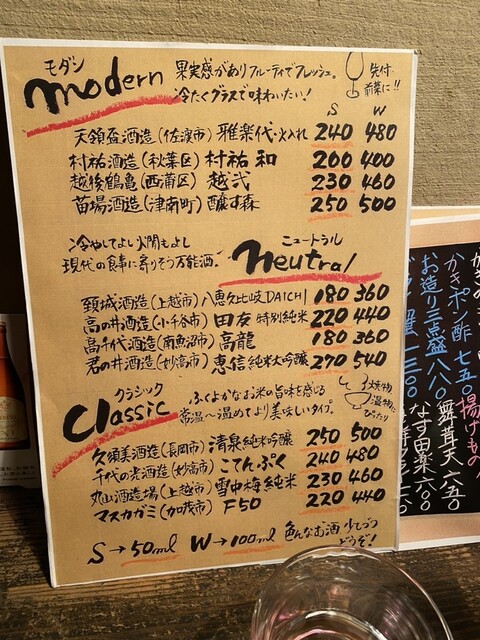 モダン
modern
果実感がありフルーティでフレッシュ。
冷たくグラスで味わいたい!
先付
前菜に!!
S W
天領盃酒造(佐渡市)雅楽代・火入れ 240 480
村祐酒造(秋葉区)村祐 和 200 400
越後鶴亀(西蒲区)越弌 230 460
苗場酒造(津南町)醸す森 250 500
冷やしてよし火燗もよし
現代の食事に寄りそう万能酒。
ニュートラル
neutral
頚城酒造(上越市)八恵久比岐DAICHI 180 360
高の井酒造(小千谷市)田友 特別純米 220 440
高千代酒造(南魚沼市)高龍 180 360
君の井酒造(妙高市)恵信 純米大吟醸 270 540
クラシック
classic
ふくよかなお米の旨味を感じる
常温〜温めてより美味しいタイプ。
焼物
温物に
ぴったり
久須美酒造(長岡市)清泉 純米吟醸 250 500
千代の光酒造(妙高市)こてんぷく 240 480
丸山酒造場(上越市)雪中梅 純米 230 460
マスカガミ(加茂市)F50 220 440
S→50ml W→100ml
色んなお酒 少しづつ
どうぞ!
かきポン酢 七五〇
お造り三点盛 一八〇〇
揚げもの
舞茸天 六五〇
なす田楽 六〇〇